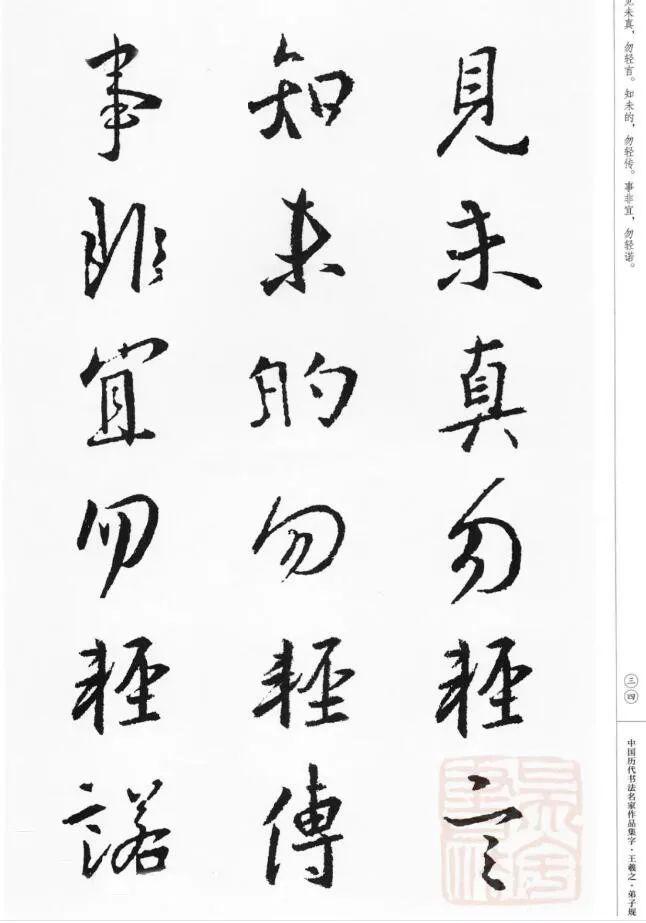 見未真勿輕言
知未的勿輕傳
事非宜勿輕諾
见未真，勿轻言。知未的，勿轻传。事非宜，勿轻诺。
三四
中国历代书法名家作品集字·王羲之·弟子规